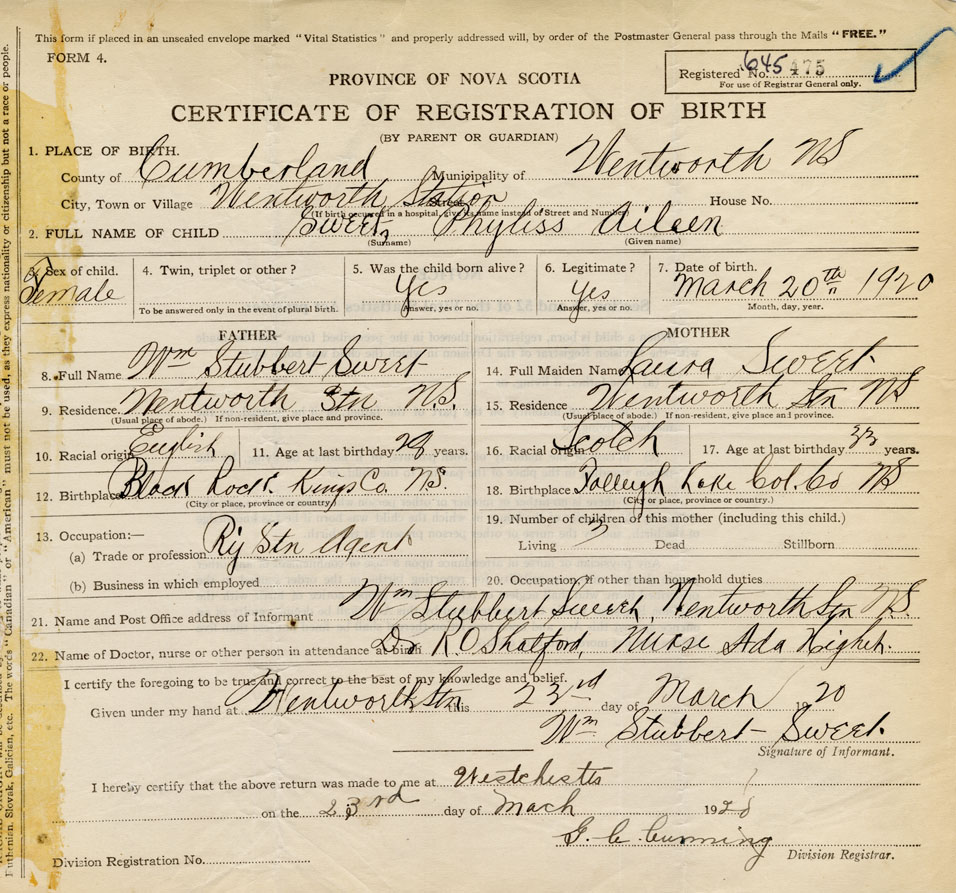 This form if placed in an unsealed envelope marked "Vital Statistics" and properly addressed will, by order of the Postmaster General pass through the Mails "FREE."
FORM 4.
Registered No. 645475
For use of Registrar General only.
PROVINCE OF NOVA SCOTIA
CERTIFICATE OF REGISTRATION OF BIRTH
(BY PARENT OR GUARDIAN)
1. PLACE OF BIRTH.
County of Cumberland Municipality of Wentworth NS
City, Town or Village Wentworth Station Street House No.
(If birth occurred in a hospital, give its name instead of Street and Number)
2. FULL NAME OF CHILD Sweet, Phyliss Aileen
(Surname) (Given name)
3. Sex of child. Female
4. Twin, triplet or other?
To be answered only in the event of plural birth.
5. Was the child born alive? Yes
Answer, yes or no.
6. Legitimate? Yes
Answer, yes or no.
7. Date of birth. March 20th 1920
Month, day, year.
FATHER
8. Full Name Wm Stubbert Sweet
9. Residence. Wentworth Stn N.S.
(Usual place of abode.) If non-resident, give place and province.
10. Racial origin English 11. Age at last birthday 28 years.
12. Birthplace Black Rock. Kings Co. N.S.
(City or place, province or country.)
13. Occupation:—
(a) Trade or profession Ry Stn Agent
(b) Business in which employed
MOTHER
14. Full Maiden Name Laura Sweet.
15. Residence Wentworth Stn NS
(Usual place of abode.) If non-resident, give place and province.
16. Racial origin Scotch 17. Age at last birthday 33 years.
18. Birthplace Folleigh Lake Col. Co NS
(City or place, province or country.)
19. Number of children of this mother (including this child.)
Living 3 Dead Stillborn
20. Occupation if other than household duties
21. Name and Post Office address of Informant Wm Stubbert Sweet, Wentworth Stn N.S.
22. Name of Doctor, nurse or other person in attendance at birth Dr R.O Shatford, Nurse Ada
I certify the foregoing to be true and correct to the best of my knowledge and belief.
Given under my hand at Wentworth Stn this 23rd day of March 1920
Wm Stubbert Sweet.
Signature of Informant.
I hereby certify that the above return was made to me at Westchester
on the 23rd day of Mach 192
G. C. Cunning
Division Registrar.
Division Registration No.
Ruthenian, Slovak, Galician, etc. The words "Canadian" or "American" must not be used, as they express nationality or citizenship but not a race or people.